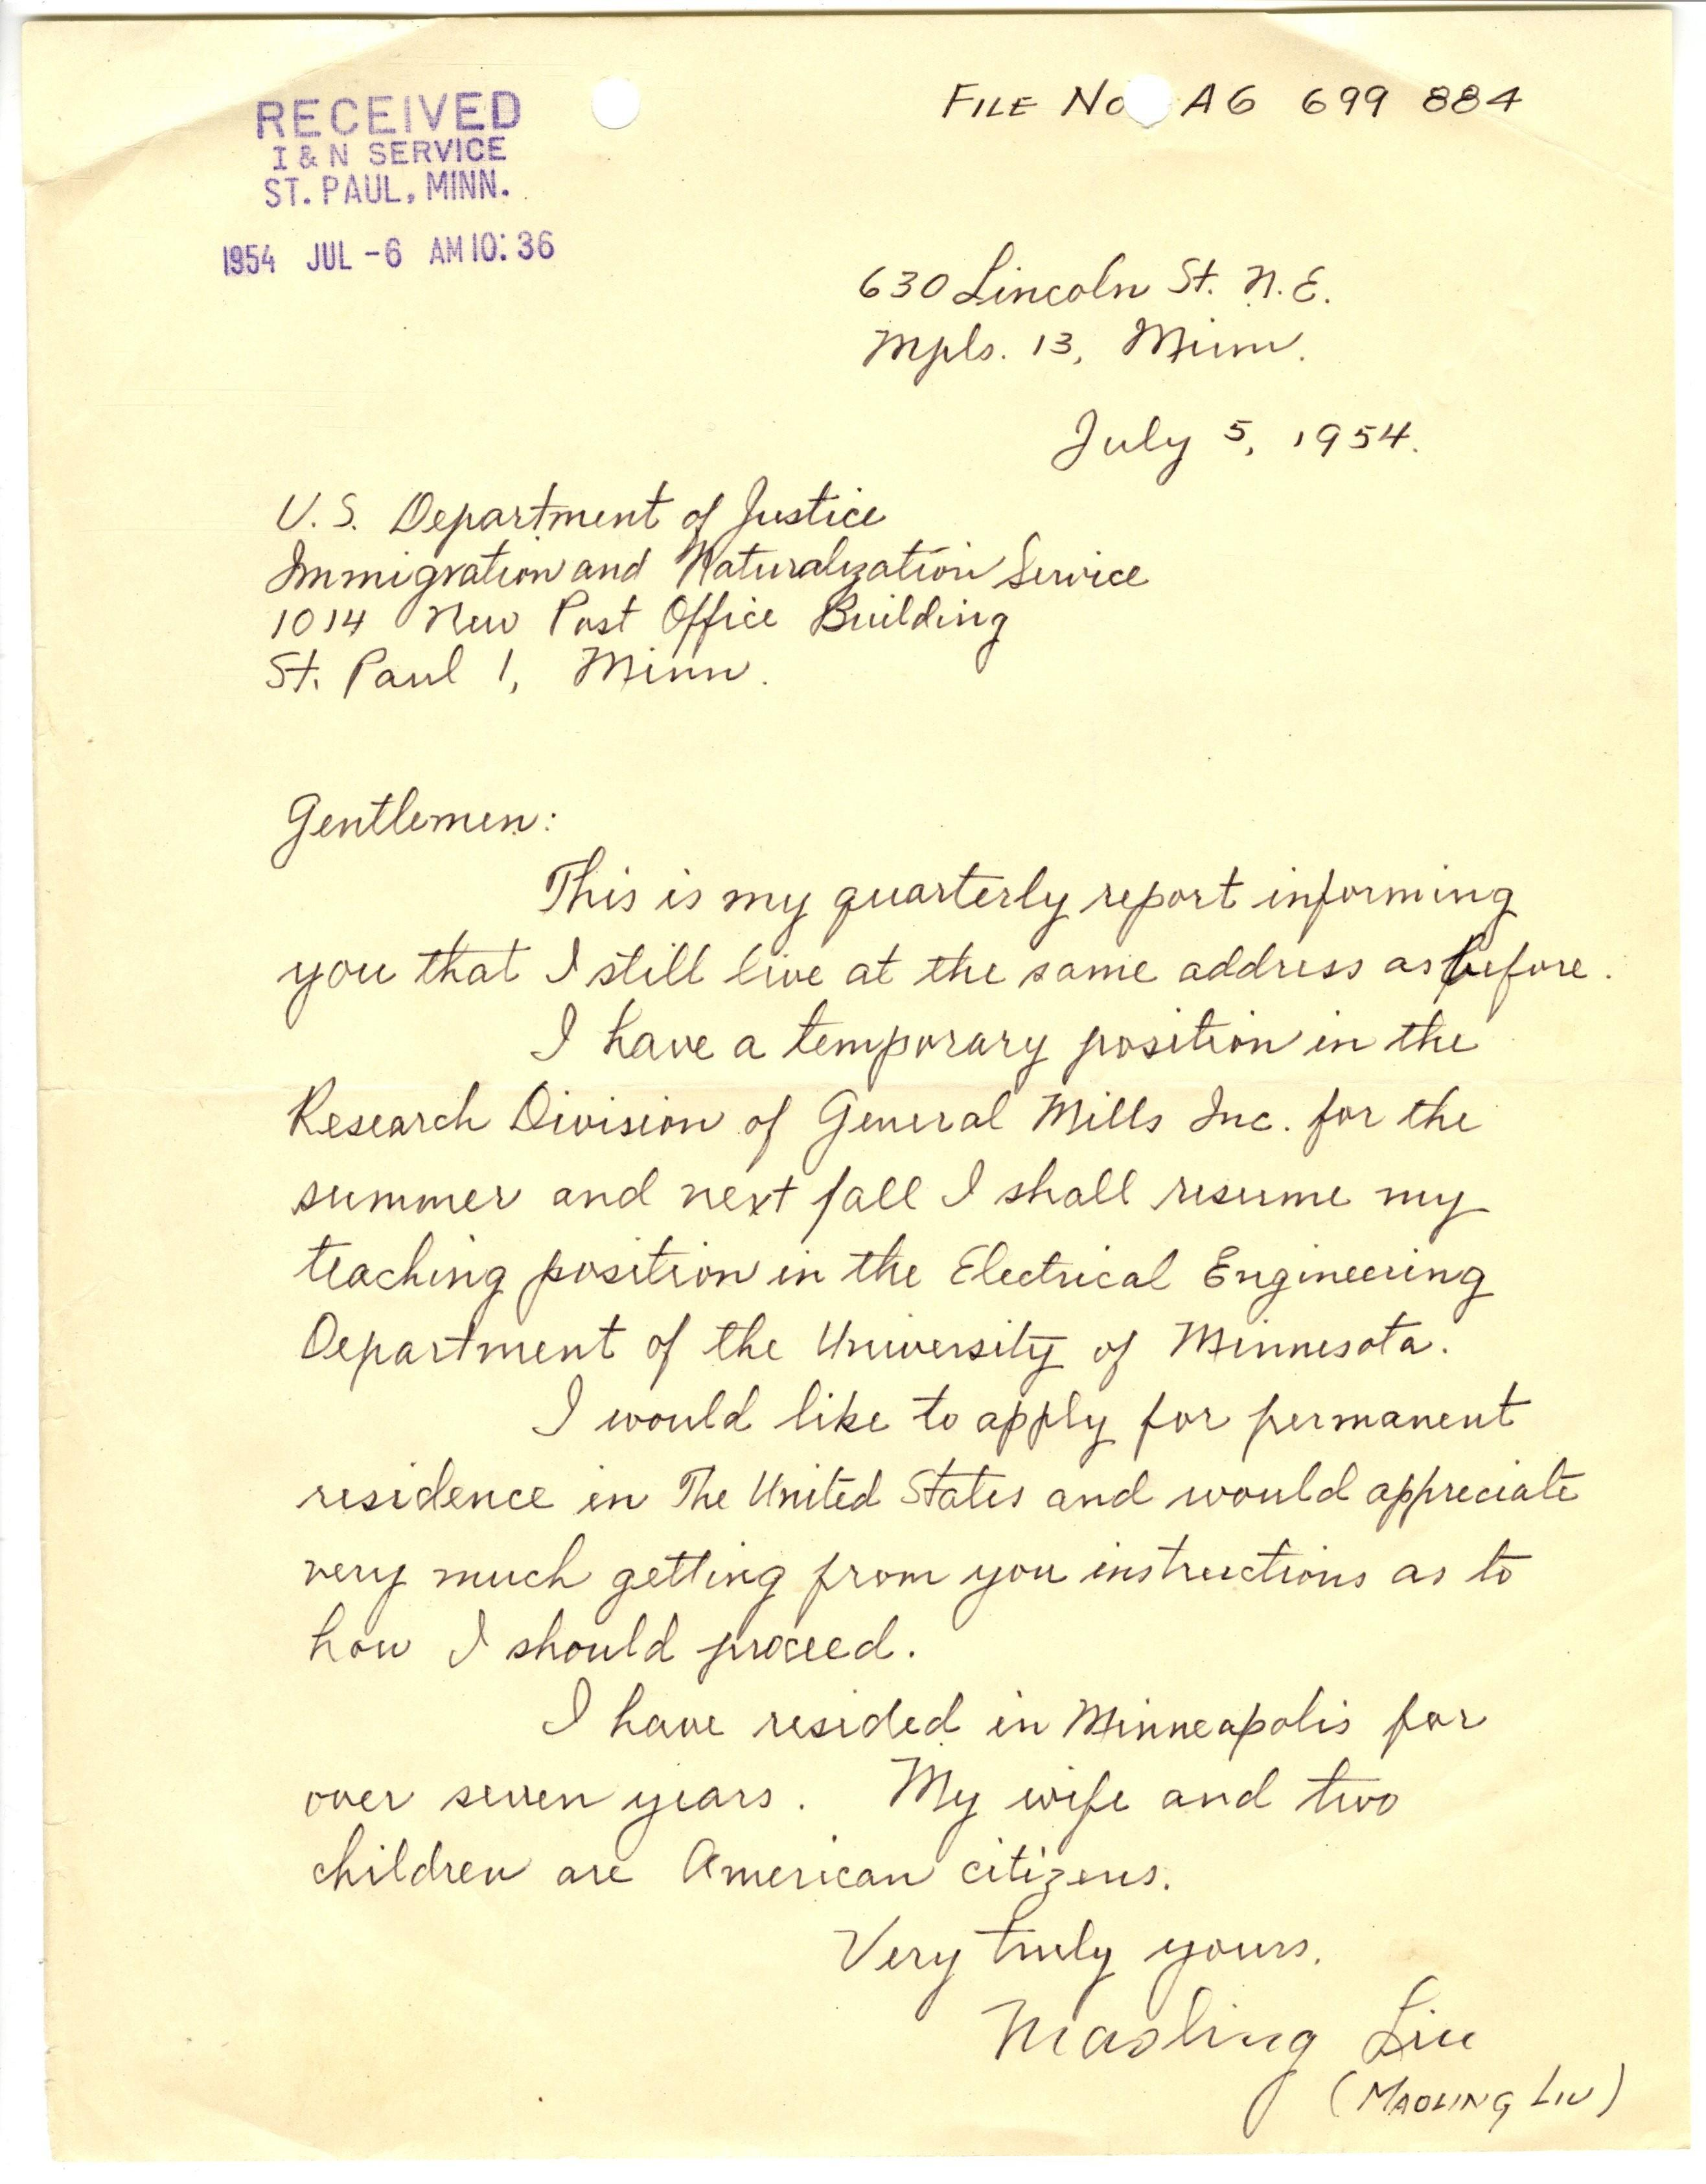 RECEIVED
I & N SERVICE
ST. PAUL, MINN.
1954 JUL -6 AM 10:36
FILE No A6 699 884
630 Lincoln St. N.E.
Mpls. 13, Minn.
July 5, 1954.
U.S. Department of Justice
Immigration and Naturalization Service
1014 New Post Office Building
St. Paul 1, Minn.
Gentlemen:
This is my quarterly report informing
you that I still live at the same address as before.
I have a temporary position in the
Research Division of General Mills Inc. for the
summer and next fall I shall resume my
teaching position in the Electrical Engineering
Department of the University of Minnesota.
I would like to apply for permanent
residence in The United States and would appreciate
very much getting from you instructions as to
how I should proceed.
I have resided in Minneapolis for
over seven years. My wife and two
children are American citizens.
Very truly yours.
Maoling Liu
(MAOLING LIU)